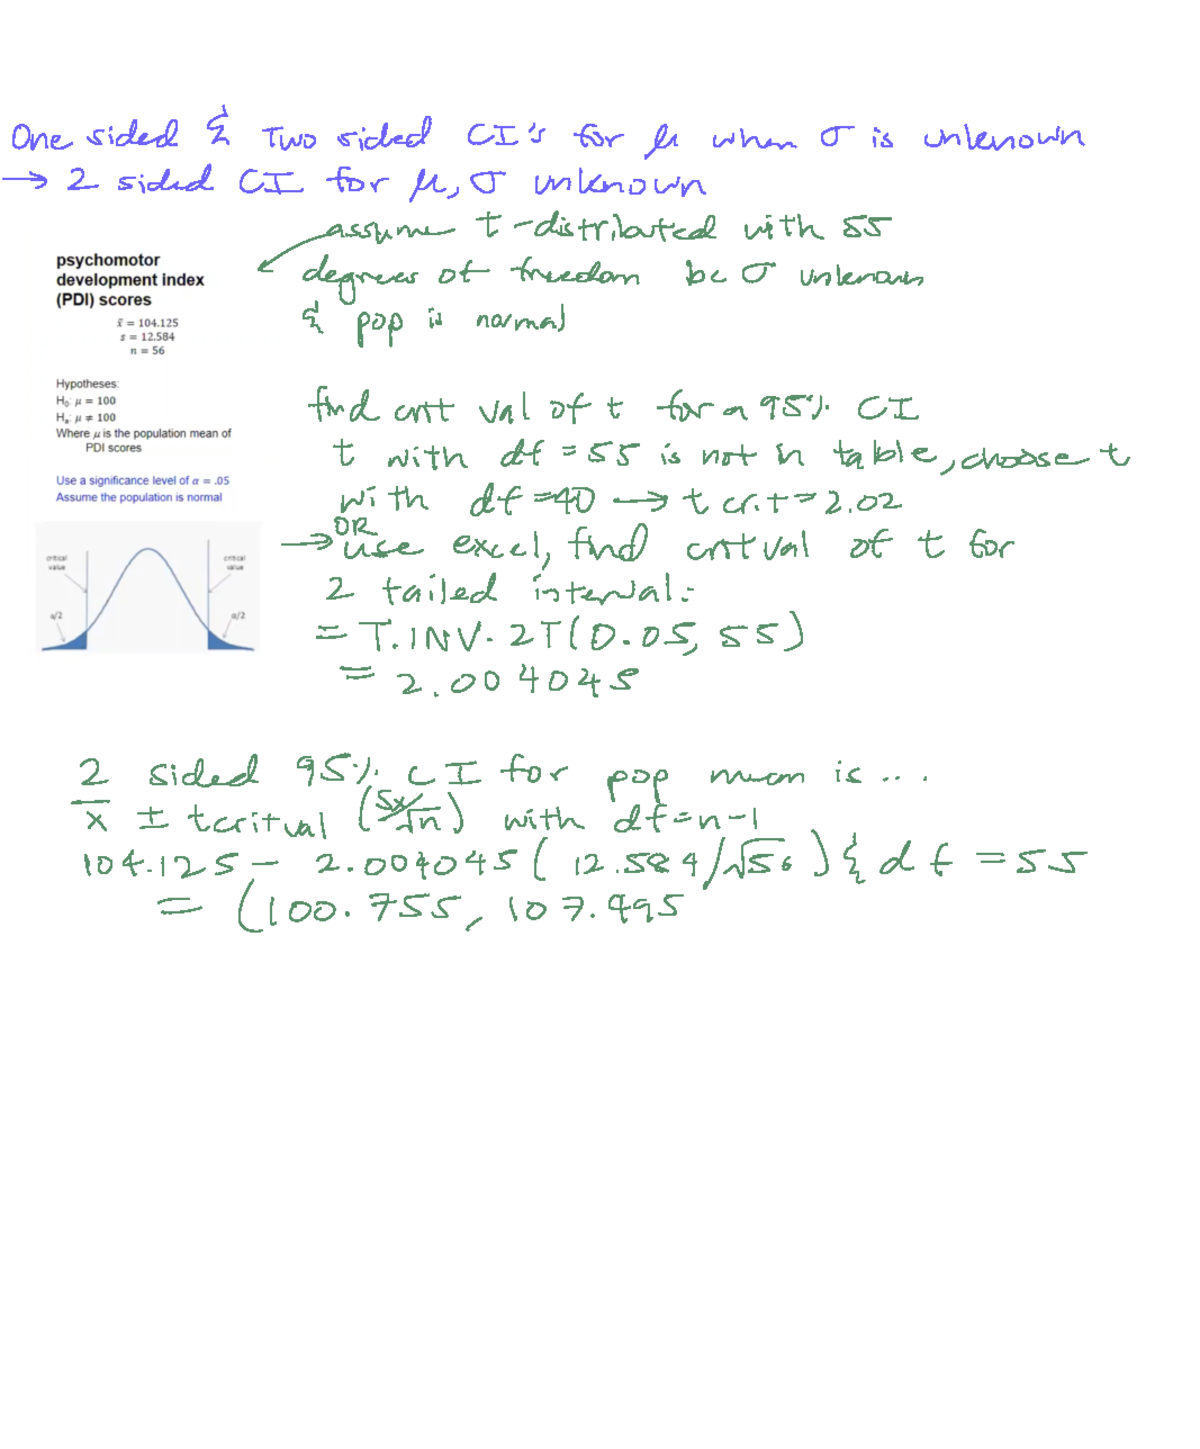 One sided & Two sided CI's for μ when σ is unknown
→ 2 sided CI for μ, σ unknown
assume t-distributed with 55
degrees of freedom bc σ unknown
& pop is normal
psychomotor
development index
(PDI) scores
x̄ = 104.125
s = 12.584
n = 56
Hypotheses:
H₀: μ = 100
Hₐ: μ ≠ 100
Where μ is the population mean of
PDI scores
Use a significance level of α = .05
Assume the population is normal
critical
value
critical
value
α/2
α/2
find crit val of t for a 95% CI
t with df = 55 is not in table, choose t
with df = 40 → t crit = 2.02
OR
→ use excel, find crit val of t for
2 tailed interval:
= T.INV.2T(0.05, 55)
= 2.004045
2 sided 95% CI for pop mean is ...
x̄ ± tcritval (Sx/√n) with df = n-1
104.125 - 2.004045 (12.584/√56) & df = 55
= (100.755, 107.495